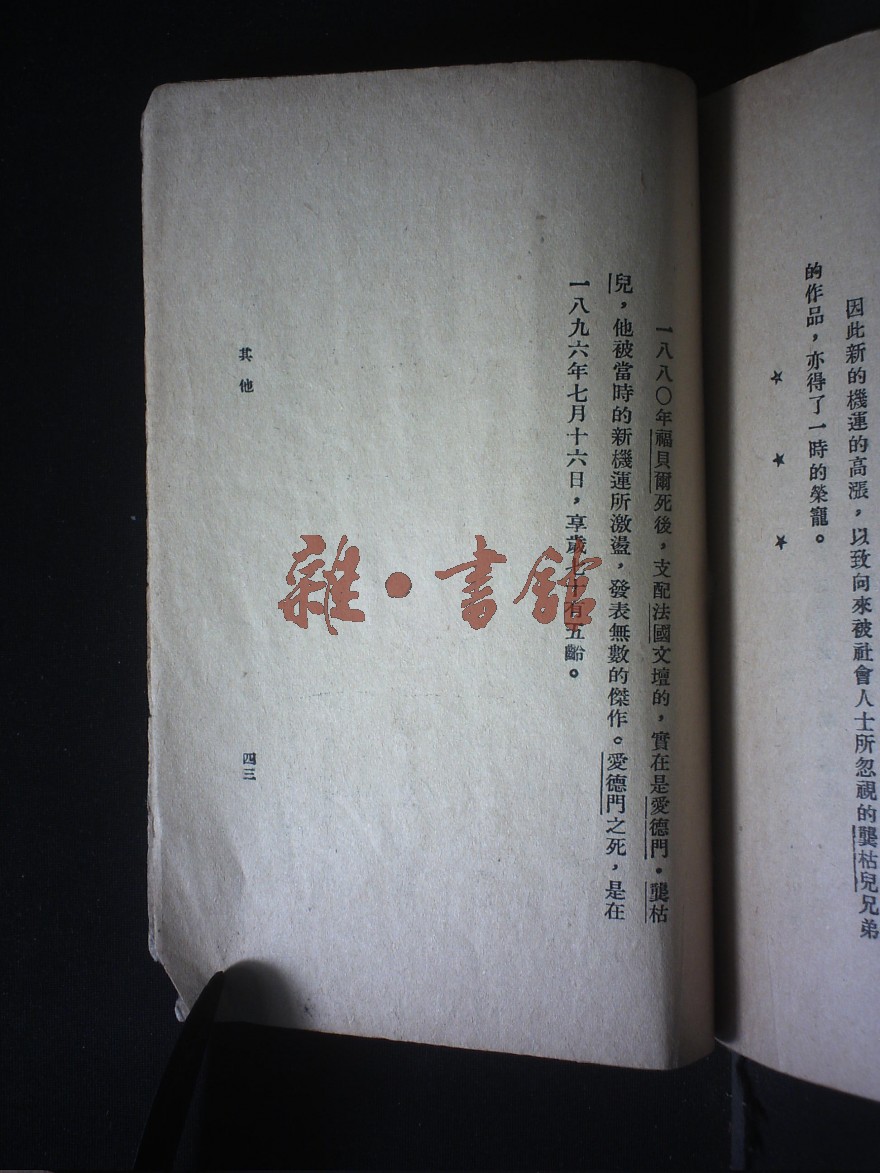 因此新的機運的高漲，以致向來被社會人士所忽視的龔枯兒兄弟
的作品，亦得了一時的榮寵。
★ ★ ★
一八八〇年福貝爾死後，支配法國文壇的，實在是愛德門・龔枯
兒，他被當時的新機運所激盪，發表無數的傑作。愛德門之死，是在
一八九六年七月十六日，享歲七十有五齡。
其他
四三
雜・書館